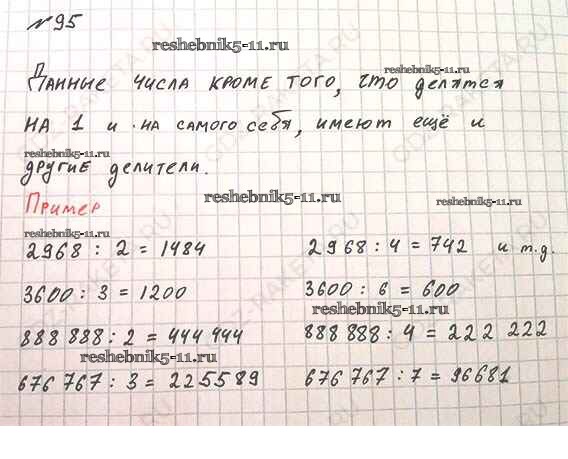 №95
reshebnik5-11.ru
reshebnik5-11.ru
Данные числа кроме того, что делятся
на 1 и на самого себя, имеют ещё и
reshebnik5-11.ru
другие делители.
reshebnik5-11.ru
reshebnik5-11.ru
Пример
reshebnik5-11.ru
2968 : 2 = 1484 2968 : 4 = 742 и т.д.
3600 : 3 = 1200 3600 : 6 = 600
reshebnik5-11.ru
888 888 : 2 = 444 444 888 888 : 4 = 222 222
reshebnik5-11.ru
676 767 : 3 = 225589 676 767 : 7 = 96681